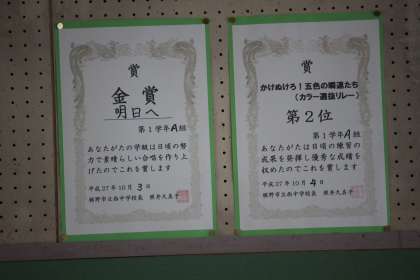 賞
金賞
明日へ
第1学年A組
あなたがたの学級は日頃の努
力で素晴らしい合唱を作り上
げたのでこれを賞します
平成27年10月3日
裾野市立西中学校長 照井久美子
賞
かけぬけろ!五色の瞬速たち
(カラー選抜リレー)
第2位
第1学年A組
あなたがたは日頃の練習の
成果を発揮し優秀な成績を
収めたのでこれを賞します
平成27年10月4日
裾野市立西中学校長 照井久美子